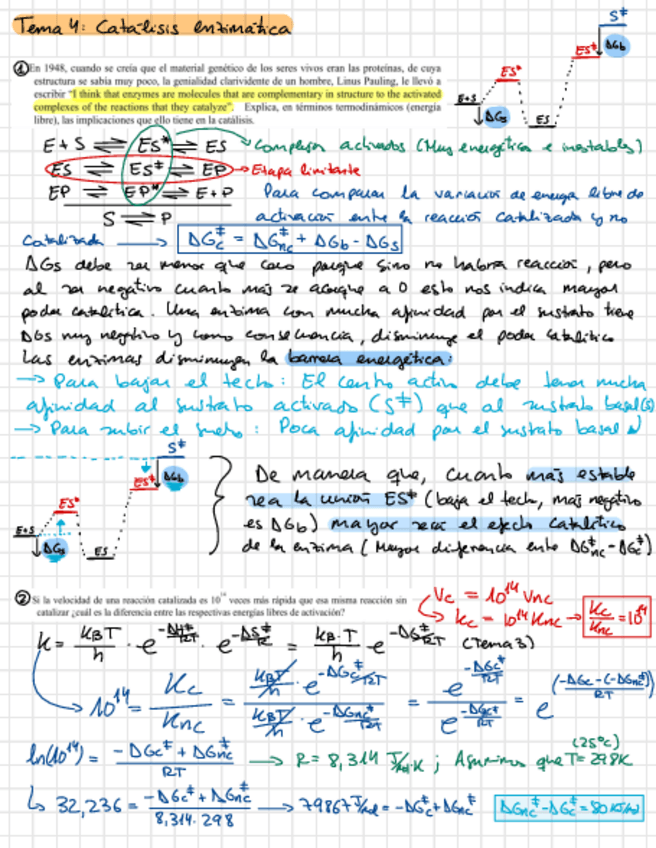 Tema 4: Catálisis enzimática
S‡
ES‡ ΔGb
ES*
E+S
ΔGs
ES
① En 1948, cuando se creía que el material genético de los seres vivos eran las proteínas, de cuya
estructura se sabía muy poco, la genialidad clarividente de un hombre, Linus Pauling, le llevó a
escribir "I think that enzymes are molecules that are complementary in structure to the activated
complexes of the reactions that they catalyze". Explica, en términos termodinámicos (energía
libre), las implicaciones que ello tiene en la catálisis.
E + S ⇌ ES* ⇌ ES → Complejos activados (Muy energéticos e inestables)
ES ⇌ ES‡ ⇌ EP → Etapa limitante
EP ⇌ EP* ⇌ E+P Para comparar la variación de energía libre de
S ⇌ P activación entre la reacción catalizada y no
catalizada → ΔGc‡ = ΔGnc‡ + ΔGb - ΔGs
ΔGs debe ser menor que cero porque sino no habría reacción, pero
al ser negativo cuanto más se acerque a 0 esto nos indica mayor
poder catalítico. Una enzima con mucha afinidad por el sustrato tiene
ΔGs muy negativo y como consecuencia, disminuye el poder catalítico
Las enzimas disminuyen la barrera energética:
→ Para bajar el techo: El centro activo debe tener mucha
afinidad al sustrato activado (S‡) que al sustrato basal (S)
→ Para subir el suelo: Poca afinidad por el sustrato basal
S‡
ES‡ ΔGb
ES*
E+S
ΔGs
ES
De manera que, cuanto más estable
sea la unión ES‡ (baja el techo, más negativo
es ΔGb) mayor será el efecto catalítico
de la enzima (Mayor diferencia entre ΔGnc‡ - ΔGc‡)
② Si la velocidad de una reacción catalizada es 10^14 veces más rápida que esa misma reacción sin
catalizar ¿cuál es la diferencia entre las respectivas energías libres de activación?
Vc = 10^14 Vnc
Kc = 10^14 Knc → Kc/Knc = 10^14
K = KBT/h · e^-ΔH‡/RT · e^-ΔS‡/R = KB·T/h e^-ΔG‡/RT (Tema 3)
10^14 = Kc/Knc = (KBT/h · e^-ΔGc‡/RT)/(KBT/h · e^-ΔGnc‡/RT) = e^-ΔGc‡/RT / e^-ΔGc‡/RT = e^((-ΔGc-(-ΔGnc‡))/RT)
ln(10^14) = (-ΔGc‡ + ΔGnc‡)/RT → R = 8,314 J/mol·K ; Asumimos que T= 298K (25ºC)
↳ 32,236 = (-ΔGc‡ + ΔGnc‡)/(8,314·298) → 79867 J/mol = -ΔGc‡ + ΔGnc‡ ΔGnc‡ - ΔGc‡ = 80 KJ/mol